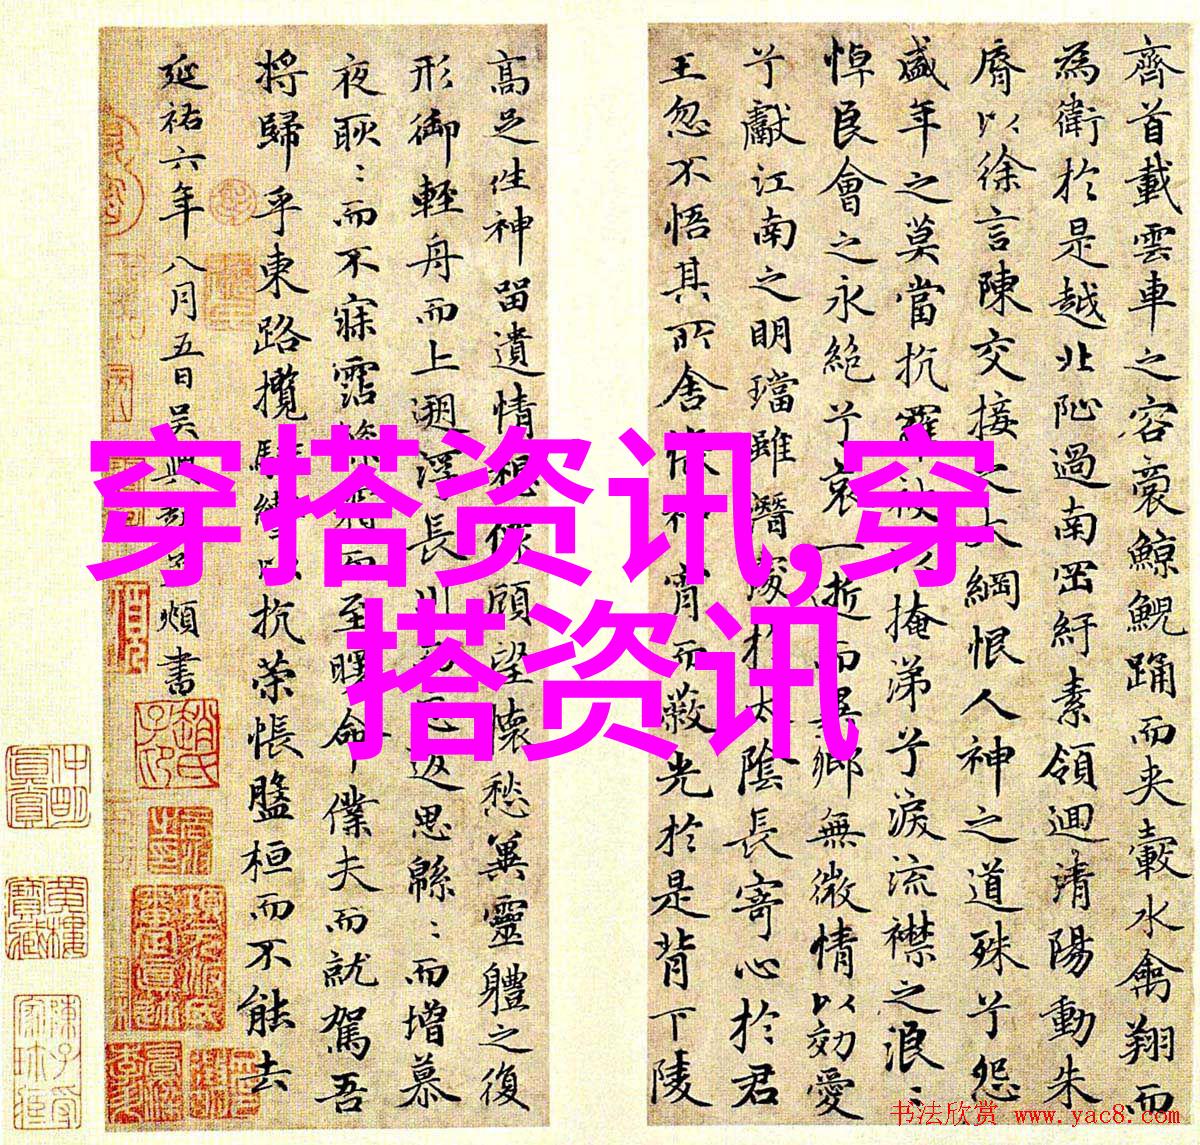 齊首載雲車之容裔鯨鯢踊而夾轂水禽翔而
為衛於是越北沚過南岡紆素領迴清陽動朱
脣以徐言陳交接之大綱恨人神之道殊兮怨
盛年之莫當抗羅袂以掩涕兮淚流襟之浪〻
悼良會之永絕兮哀一逝而異鄉無微情以効愛
兮獻江南之明璫雖潛處於太陰長寄心於君
王忽不悟其所舍悵神宵而蔽光於是背下陵
高足往神留遺情想像顧望懷愁冀靈軆之復
形御輕舟而上遡浮長川而忘返思緜〻而增慕
夜耿〻而不寐霑繁霜而至曙命僕夫而就駕吾
將歸乎東路攬騑轡以抗策悵盤桓而不能去
延祐六年八月五日吳興趙孟頫書
穿搭资讯,穿
搭资讯
书法欣赏 www.yac8.com